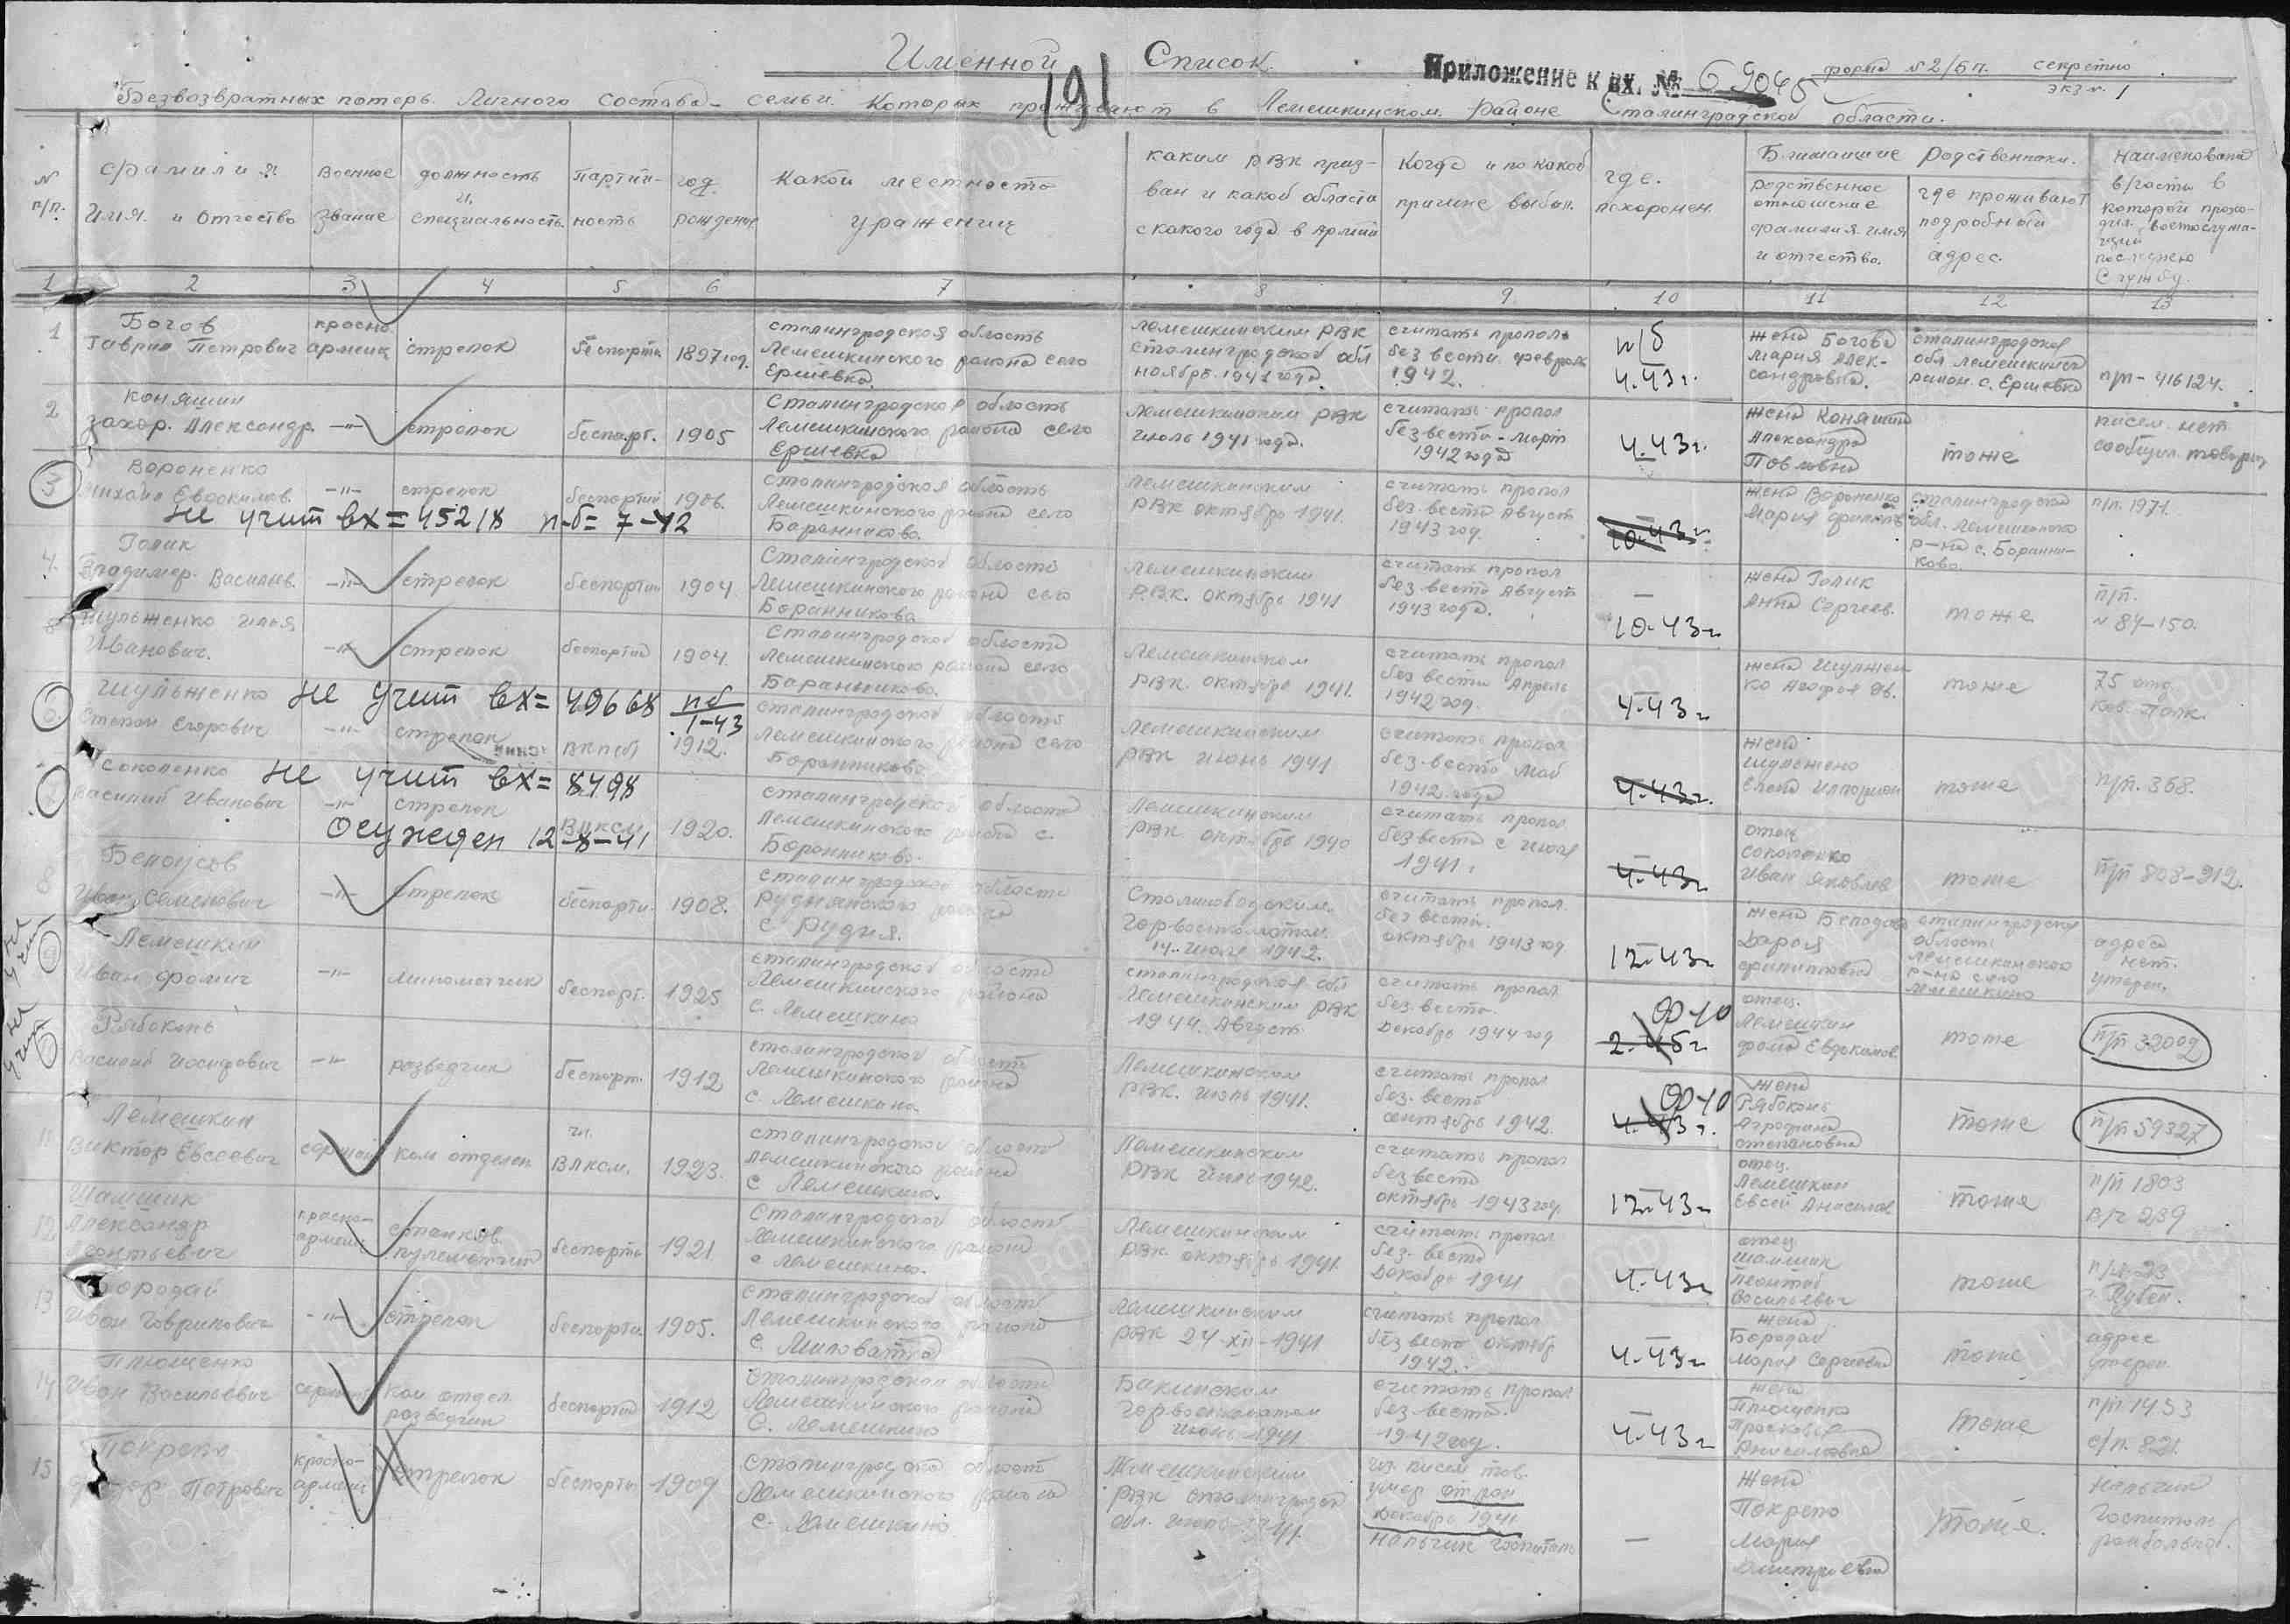 Именной Список.
191
Приложение к вх. № 69045
форма №2/Бп. секретно
экз №1
Безвозвратных потерь Личного Состава семьи Которых проживают в Лемешкинском Районе Сталинградской области.
№ п/п.
Фамилия Имя. и Отчество
Военное звание
должность и специальность.
Партийность
год рождение
Какой местности уражениц
каким РВК призван и какой области с какого года в Армии
Когда и по какой причине выбыл.
где. похоронен.
Ближайшие Родственники.
родственное отношение фамилия имя и отчество.
где проживают подробный адрес.
Наименование в/части в которой проходил военослужащий последнею службу.
1 2 3 4 5 6 7 8 9 10 11 12 13
1 Богов Гаврил Петрович
красноармеиц
стрелок
беспарти
1897 год.
сталинградская область Лемешкинского района село Ершевка.
Лемешкинским РВК сталинградской обл ноябрь 1941 года
считать пропол без вести февраль 1942.
п/б 4.43г.
жена Богова Мария Александровна.
сталинградская обл Лемешкинск район. с. Ершевка
п/п-416124.
2 Коняшин Захар. Александр.
-"-
стрелок
беспарт.
1905
Сталинградская область Лемешкинского района село Ершевка
Лемешкинским РВК июль 1941 года.
считать пропол без вести-март 1942 года
4.43г.
жена Коняшина Александра Павловна
тоже
писем нет сообщил товарищ
3 Вороненко Михаил Евдокимов.
-"-
стрелок
беспартий
1906.
Сталинградская область Лемешкинского района село Баранниково.
Лемешкинским РВК октябрь 1941.
считать пропол без вести Август 1943 год.
10.43г.
жена Вороненко Мария
сталинградская обл. Лемешкинского р-на с. Баранниково.
п/п. 1971.
Не учит вх=45218 п-б= 7-42
4. Голик Владимер. Васильев.
-"-
стрелок
беспартий
1904
Сталинградской области Лемешкинского района село Баранникова
Лемешкинским Р.В.К. октябрь 1941
считать пропол без вести Август 1943 года.
10.43г
жена Голик Анна Сергеев.
тоже
п/п. № 84-150.
Шульженко Илья Иванович.
-"-
стрелок
беспартий
1904.
Сталинградской области Лемешкинского района село Баранниково.
Лемешкинским РВК. октябрь 1941.
считать пропол без вести Апрель 1942 год.
4.43г
жена Шульженко Агафья Ив.
тоже
75 отд. Кав. Полк.
6 Шульженко Степан Егорович
Не учит вх= 49668 пб 1-43
-"-
стрелок
ВКП(б)
1912.
сталинградской область Лемешкинского района село Баранниково
Лемешкинским РВК июнь 1941
считать пропол без вести май 1942. года
4.43г.
жена Шульженко Елена
тоже
п/п. 368.
7 Соколенко Василий Иванович
Не учит вх= 8498
-"-
стрелок
ВЛКСМ
1920.
Осужден 12-8-41
сталинградской области Лемешкинского района с. Баранниково.
Лемешкинским РВК октябрь 1940
считать пропол без вести с июля 1941.
4.43г
отец Соколенко Иван Яковлев
тоже
п/п 808-212.
8 Белоусов Иван Семенович
-"-
стрелок
беспарти.
1908.
сталинградской области Руднянского района с Рудня.
Сталинободским. Горвоенкоматом. 14. июля 1942.
считать пропол. без вести. октябрь 1943 год
12.43г
жена Белоусова Дарья Филипповна
сталинградская область Лемешкинского р-на село Лемешкино
адреса нет. утерен.
не учит
9 Лемешкин Иван Фомич
-"-
минометчик
беспарт.
1925
сталинградской области Лемешкинского района с. Лемешкино
сталинградская обл Лемешкинским РВК 1944. Август
считать пропол без. вести. Декабрь 1944 год
ф-10
2.45г
отец. Лемешкин Фома Евдокимов.
тоже
п/п 32002
не учит
Рябоконь Василий Иосифович
-"-
разведчик
беспарт.
1912
сталинградской область Лемешкинского района с. Лемешкино.
Лемешкинском РВК. июль 1941.
считать пропол без. вести сентябрь 1942.
ф-10
4.43г.
жена Рябоконь Агрофина степановна
тоже
п/п 59327
11 Лемешкин Виктор Евсеевич
сержант
ком отделен
чл. ВЛКСМ.
1923.
сталинградской область Лемешкинского района с Лемешкино.
Лемешкинским РВК июль 1942.
считать пропол без вести октябрь 1943 год.
12.43г
отец. Лемешкин Евсей
тоже
п/п 1803 в/ч 239
12 Шамшин Александр Леонтьевич
красноармеиц
станков. пулеметчик
беспарти
1921.
Сталинградской область Лемешкинского района с Лемешкино.
Лемешкинским РВК октябрь 1941.
считать пропол без. вести Декабрь 1941
4.43г
отец Шамшин Леонтий Васильевич
тоже
13 Бородай Иван Гаврилович
-"-
стрелок
беспарти.
1905.
Сталинградской область Лемешкинского района С. Миловатка
Лемешкинским РВК 24-XII-1941
считать пропол без вести октябрь 1942.
4.43г
жена Бородай Мария Сергеевна
тоже
адрес утерен.
14 Плющенко Иван Васильевич
сержант
ком отдел разведчик
беспартий
1912
Сталинградской области Лемешкинского района С. Лемешкино
Бакинском Горвоенкоматом июнь 1941.
считать пропол без вести. 1942 год.
4.43г
жена Плющенко Просковья Анисимовна
тоже
п/п 1453 с/п. 821.
15 Покрепо Федор Петрович
красноармеиц
стрелок
беспарти
1909
Сталинградской область Лемешкинского района с. Лемешкино
Лемешкинским РВК сталинградской обл. июль-1941.
из. писем тов. умер от ран Декабрь 1941 Нальчик госпиталь
—
Жена Покрепо Мария Дмитриевна
тоже.
Нальчик Госпиталь